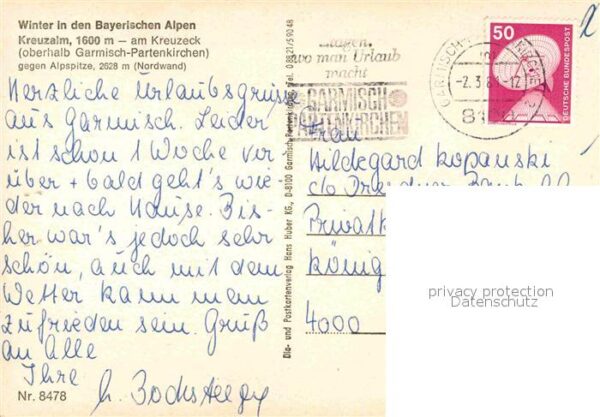 Winter in den Bayerischen Alpen
Kreuzalm, 1600 m — am Kreuzeck
(oberhalb Garmisch-Partenkirchen)
gegen Alpspitze, 2628 m (Nordwand)
Herzliche Urlaubsgrüsse
aus Garmisch. Leider
ist schon 1 Woche vor-
über + bald geht's wie-
der nach Hause. Bis-
her war's jedoch sehr
schön, auch mit dem
Wetter kann man
zufrieden sein. Gruß
an Alle
Ihre
Nr. 8478
Dia- und Postkartenverlag Hans Huber KG., D-8100 Garmisch-Partenkirchen, Tel. 0 88 21/5 90 48
...tagen,
wo man Urlaub
macht
GARMISCH
PARTENKIRCHEN
GARMISCH
KIRCHEN
-2.3
12
50
DEUTSCHE BUNDESPOST
Frau
Hildegard Kopanski
c/o Dresdner Bank AG
Privatk
König
4000
privacy protection
Datenschutz